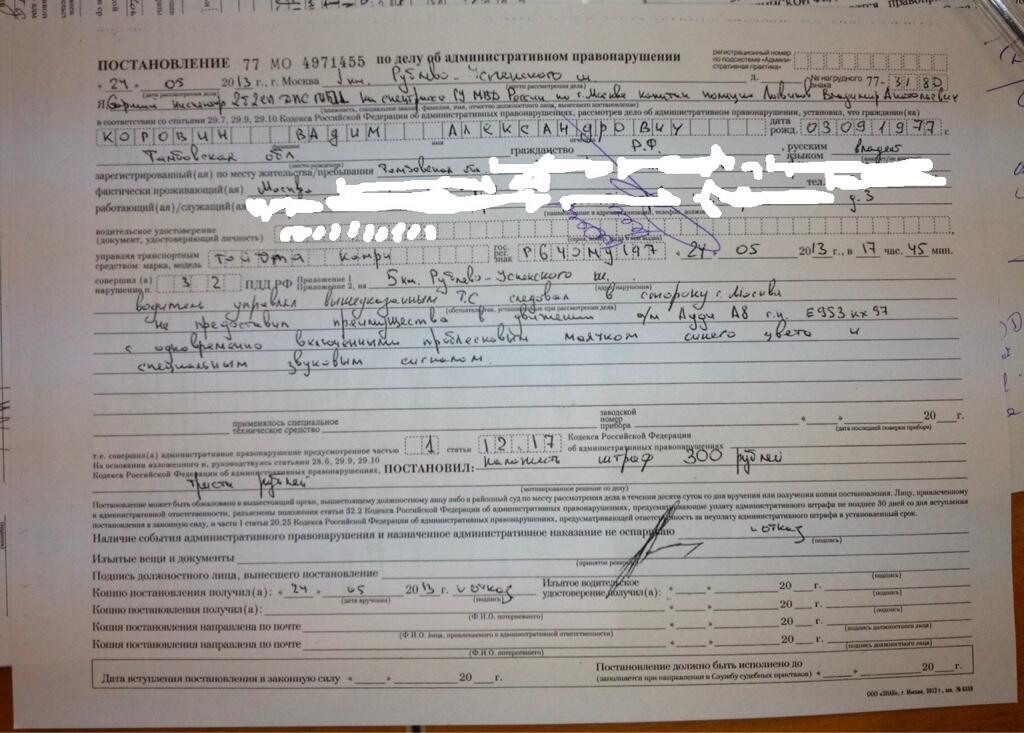 ПОСТАНОВЛЕНИЕ 77 МО 4971455 по делу об административном правонарушении
регистрационный номер по подсистеме «Административная практика»
« 24 » 05 2013 г., г. Москва 5 км. Рублево-Успенского ш. д. № нагрудного знака 77-3180
(дата рассмотрения дела)
Я, Старший инспектор 2 ДПС на спецтрассе ГУ МВД России по г. Москве капитан полиции Владимир Анатольевич
(должность, специальное звание, фамилия, имя, отчество должностного лица, вынесшего постановление)
в соответствии со статьями 29.7, 29.9, 29.10 Кодекса Российской Федерации об административных правонарушениях, рассмотрев дело об административном правонарушении, установил, что гражданин(ка)
КОРОВИН ВАДИМ АЛЕКСАНДРОВИЧ дата рожд. 03091977 г.
фамилия имя отчество
Тамбовская обл гражданство Р.Ф. , русским языком владеет
(место рождения)
зарегистрированный(ая) по месту жительства/пребывания Тамбовская обл
фактически проживающий(ая) Москва тел.
работающий(ая)/служащий(ая) д. 3
(наименование и адрес организации, телефон, должность)
водительское удостоверение
(документ, удостоверяющий личность)
(серия, номер, когда и кем выдан)
управляя транспортным средством: марка, модель Тойота Камри гос. рег. знак Р640МУ197 « 24 » 05 2013 г., в 17 час. 45 мин.
совершил(а) нарушение п. 3 2 ПДД РФ Приложение 1 Приложение 2, на 5 км. Рублево-Успенского ш.
(адрес нарушения)
водитель управлял вышеуказанным Т.С следовал в сторону г. Москва
(обстоятельства, установленные при рассмотрении дела)
не предоставил преимущества в движении а/м Ауди А8 г.н. Е953кх97
с одновременно включенными проблесковым маячком синего цвета и
специальным звуковым сигналом.
применялось специальное техническое средство заводской номер прибора « » 20 г.
(дата последней поверки прибора)
т.е. совершил(а) административное правонарушение предусмотренное частью 1 статьи 12.17 Кодекса Российской Федерации об административных правонарушениях
На основании изложенного и, руководствуясь статьями 28.6, 29.9, 29.10
Кодекса Российской Федерации об административных правонарушениях, ПОСТАНОВИЛ: наложить штраф 300 рублей
триста рублей
(мотивированное решение по делу)
Постановление может быть обжаловано в вышестоящий орган, вышестоящему должностному лицу либо в районный суд по месту рассмотрения дела в течении десяти суток со дня вручения или получения копии постановления. Лицу, привлеченному
к административной ответственности, разъяснены положения статьи 32.2 Кодекса Российской Федерации об административных правонарушениях, предусматривающие уплату административного штрафа не позднее 30 дней со дня вступления
постановления в законную силу, и части 1 статьи 20.25 Кодекса Российской Федерации об административных правонарушениях, предусматривающей ответственность за неуплату административного штрафа в установленный срок.
Наличие события административного правонарушения и назначенное административное наказание не оспариваю отказ
(подпись)
Изъятые вещи и документы
(принятое решение)
Подпись должностного лица, вынесшего постановление
(подпись)
Копию постановления получил(а): « 24 » 05 2013 г. отказ Изъятое водительское удостоверение получил(а): « » 20 г.
(дата вручения) (подпись) (подпись)
Копию постановления получил(а): « » 20 г.
(Ф.И.О. потерпевшего) (подпись)
Копия постановления направлена по почте « » 20 г.
(Ф.И.О. лица, привлекаемого к административной ответственности) (подпись должностного лица)
Копия постановления направлена по почте « » 20 г.
(Ф.И.О. потерпевшего) (подпись должностного лица)
Дата вступления постановления в законную силу « » 20 г. Постановление должно быть исполнено до « » 20 г.
(заполняется при направлении в Службу судебных приставов)
ООО «ЗНАК», г. Москва, 2012 г., зак. № 6318